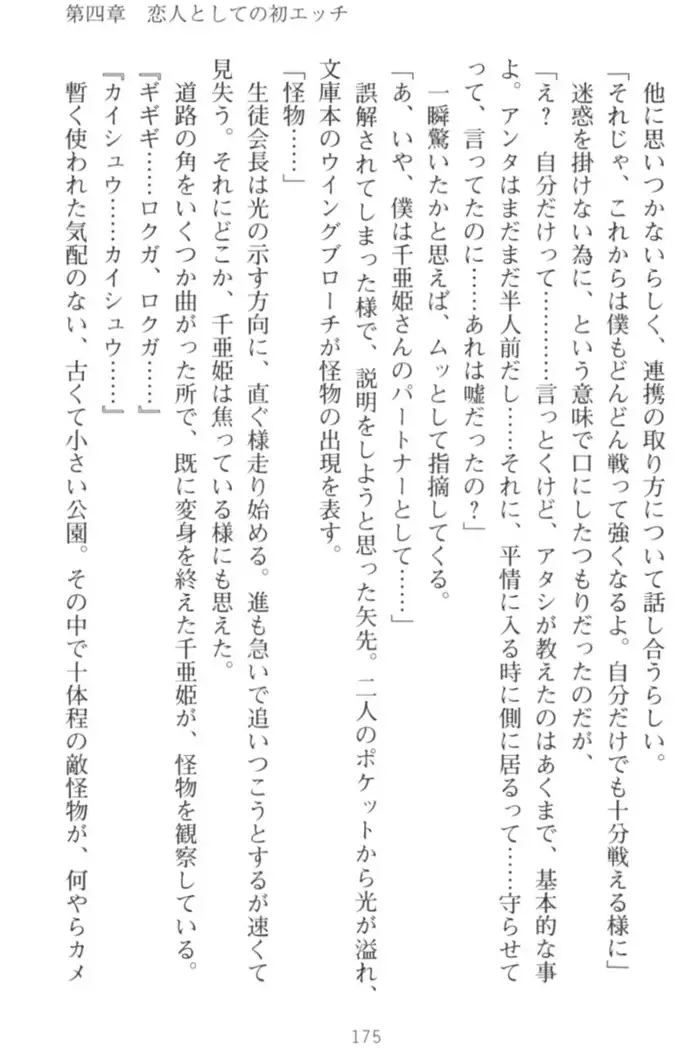 第四章　恋人としての初エッチ
他に思いつかないらしく、連携の取り方について話し合うらしい。
「それじゃ、これからは僕もどんどん戦って強くなるよ。自分だけでも十分戦える様に」
迷惑を掛けない為に、という意味で口にしたつもりだったのだが、
「え？　自分だけって…………言っとくけど、アタシが教えたのはあくまで、基本的な事
よ。アンタはまだまだ半人前だし……それに、平情に入る時に側に居るって……守らせて
って、言ってたのに……あれは嘘だったの？」
一瞬驚いたかと思えば、ムッとして指摘してくる。
「あ、いや、僕は千亜姫さんのパートナーとして……」
誤解されてしまった様で、説明をしようと思った矢先。二人のポケットから光が溢れ、
文庫本のウイングブローチが怪物の出現を表す。
「怪物……」
生徒会長は光の示す方向に、直ぐ様走り始める。進も急いで追いつこうとするが速くて
見失う。それにどこか、千亜姫は焦っている様にも思えた。
道路の角をいくつか曲がった所で、既に変身を終えた千亜姫が、怪物を観察している。
『ギギギ……ロクガ、ロクガ……』
『カイシュウ……カイシュウ……』
暫く使われた気配のない、古くて小さい公園。その中で十体程の敵怪物が、何やらカメ
175